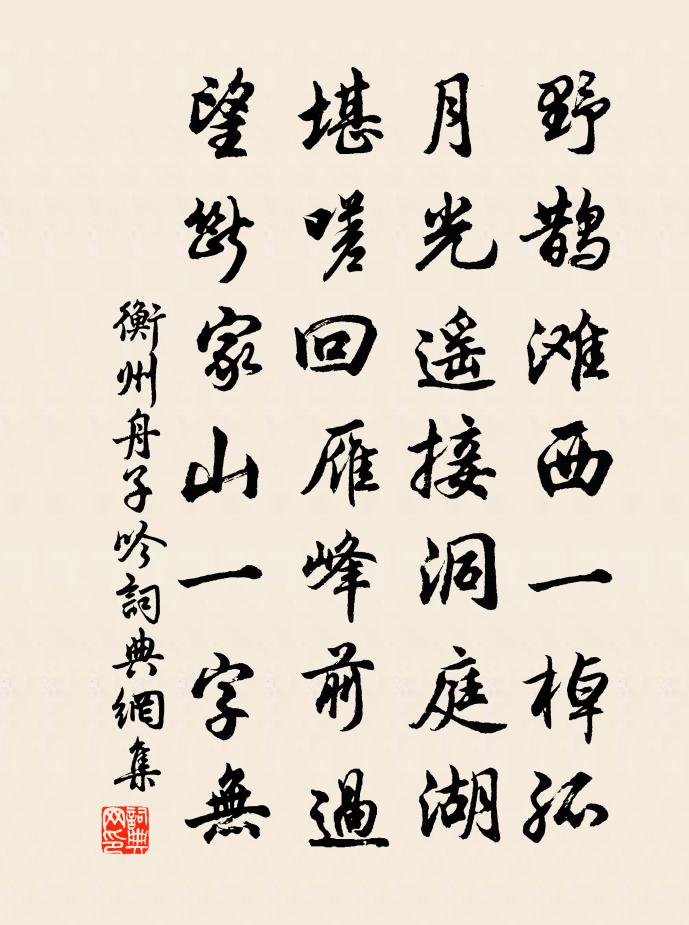 野鵲滩西一棹孤
月光遥接洞庭湖
堪嗟回雁峰前過
望斷家山一字無
衡州舟子吟詞典網集
詞典
网印